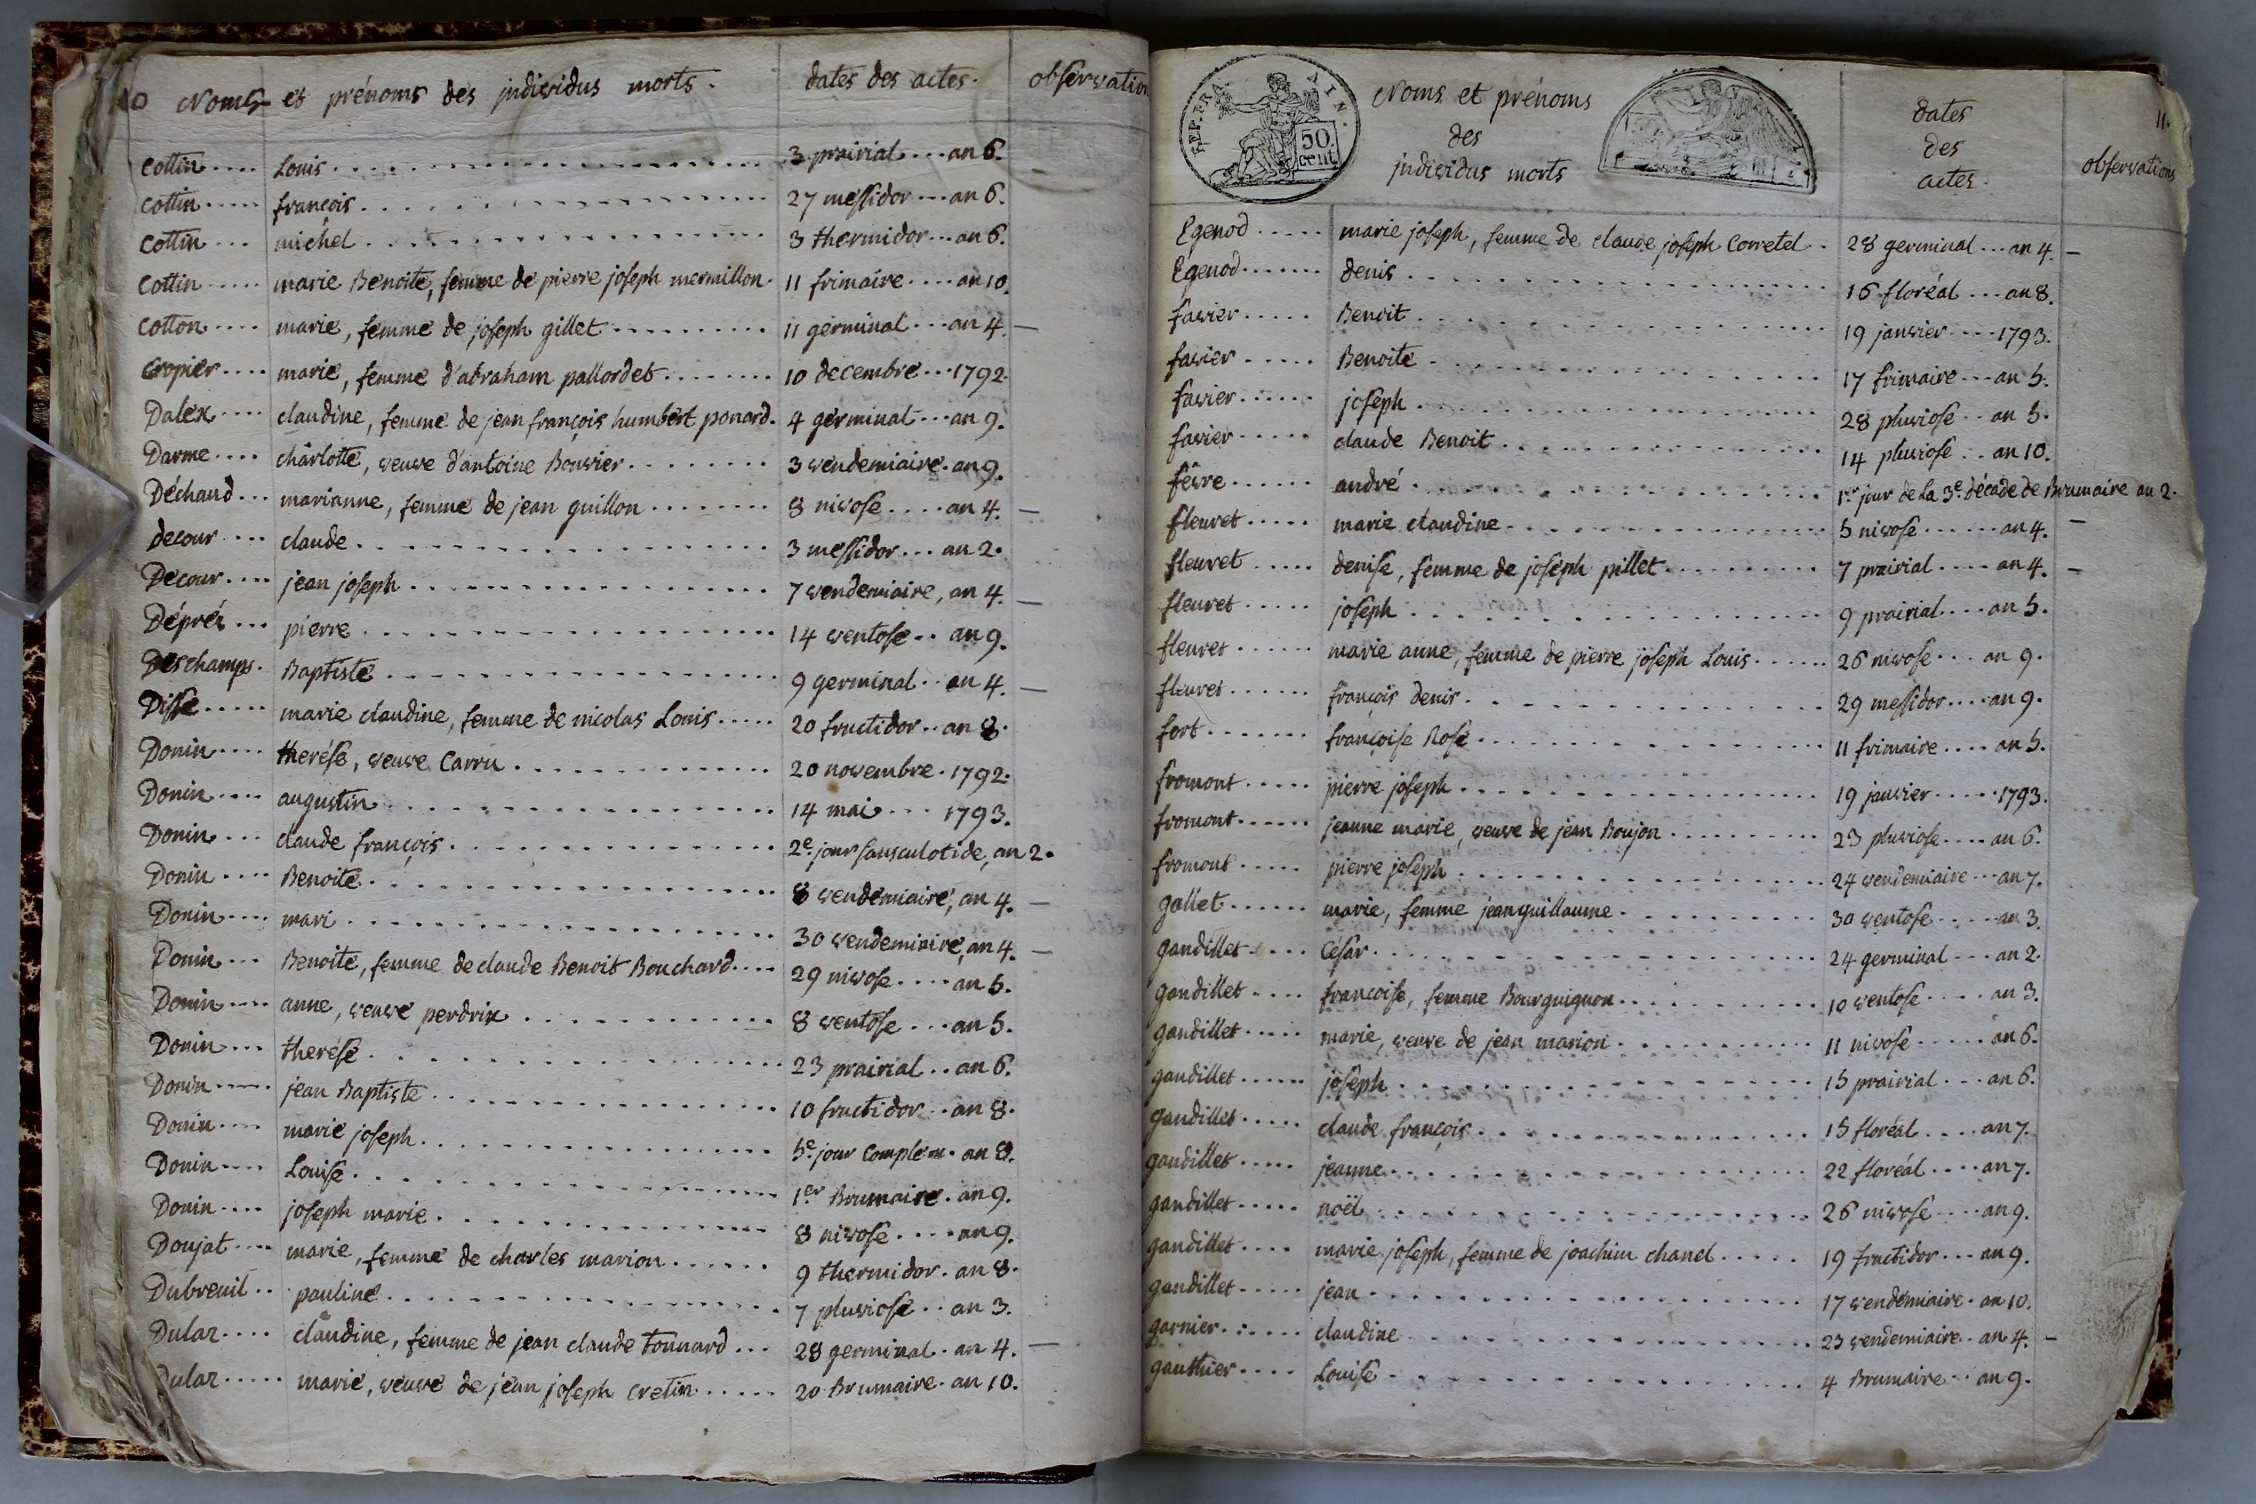 10 Noms et prénoms des jndividus morts. dates des actes. observation
Cottin.... Louis. 3 prairial... an 6.
Cottin..... françois. 27 messidor... an 6.
Cottin... michel. 3 thermidor... an 6.
Cottin..... marie Benoite, femme de pierre joseph mermillon. 11 frimaire.... an 10.
Cotton.... marie, femme de joseph gillet. 11 germinal... an 4. —
Cropier.... marie, femme d'abraham pallordet. 10 decembre... 1792.
Dalex.... claudine, femme de jean françois humbert ponard. 4 germinal... an 9.
Darme.... charlotte, veuve d'antoine Bouvier. 3 vendemiaire. an 9.
Déchaud... marianne, femme de jean guillon. 8 nivose.... an 4. —
decour... claude. 3 messidor... an 2.
Decour.... jean joseph. 7 vendemiaire, an 4. —
Déprés... pierre. 14 ventose.. an 9.
Deschamps. Baptiste. 9 germinal.. an 4. —
Dissé..... marie claudine, femme de nicolas Louis..... 20 fructidor.. an 8.
Donin.... therése, veuve Carru. 20 novembre. 1792.
Donin.... augustin. 14 mai... 1793.
Donin... claude françois. 2e. jour sansculotide, an 2.
Donin.... Benoite. 8 vendemiaire, an 4. —
Donin.... mari. 30 vendemiaire, an 4. —
Donin... Benoite, femme de claude Benoit Bouchard.... 29 nivose.... an 5.
Donin.... anne, veuve perdrix. 8 ventose... an 5.
Donin... therése. 23 prairial.. an 6.
Donin..... jean Baptiste. 10 fructidor.. an 8.
Donin.... marie joseph. 5e. jour complem. an 8.
Donin.... Louise. 1er Brumaire. an 9.
Donin.... joseph marie. 8 nivose.... an 9.
Doujat.... marie, femme de charles marion...... 9 thermidor. an 8.
Dubreuil.. pauline. 7 pluviose.. an 3.
Dular.... claudine, femme de jean claude tonnard... 28 germinal. an 4. —
Dular..... marie, veuve de jean joseph cretin..... 20 Brumaire. an 10.
REP. FRA 50 cent AIN.
Noms et prénoms
des
jndividus morts
dates
des
actes.
11.
observations
Egenod..... marie joseph, femme de claude joseph Corretel. 28 germinal... an 4. —
Egenod....... denis. 16 floréal... an 8.
favier..... Benoit. 19 janvier.... 1793.
favier..... Benoite. 17 frimaire... an 5.
favier...... joseph. 28 pluviose.. an 5.
favier..... claude Benoit. 14 pluviose.. an 10.
févre...... andré. 1er. jour de la 3e. décade de Brumaire an 2.
fleuret..... marie claudine. 5 nivose...... an 4. —
fleuret..... denise, femme de joseph pillet. 7 prairial.... an 4. —
fleuret..... joseph. 9 prairial.... an 5.
fleuret...... marie anne, femme de pierre joseph Louis...... 26 nivose... an 9.
fleuret...... françois denis. 29 messidor.... an 9.
fort....... françoise Rose. 11 frimaire.... an 5.
fromont..... pierre joseph. 19 janvier..... 1793.
fromont...... jeanne marie, veuve de jean Boujon. 23 pluviose.... an 6.
fromont..... pierre joseph. 24 vendemiaire... an 7.
gallet...... marie, femme jean guillaume. 30 ventose..... an 3.
gandillet.... César. 24 germinal... an 2.
gandillet.... francoise, femme Bourguignon. 10 ventose.... an 3.
gandillet..... marie, veuve de jean marion. 11 nivose..... an 6.
gandillet...... joseph. 15 prairial... an 6.
gandillet..... claude françois. 15 floréal.... an 7.
gandillet..... jeanne. 22 floréal.... an 7.
gandillet..... noël. 26 nivose.... an 9.
gandillet.... marie joseph, femme de joachim chanel..... 19 fructidor... an 9.
gandillet..... jean. 17 vendemiaire. an 10.
garnier...... claudine. 23 vendemiaire.. an 4. —
gauthier.... Louise. 4 Brumaire.. an 9.